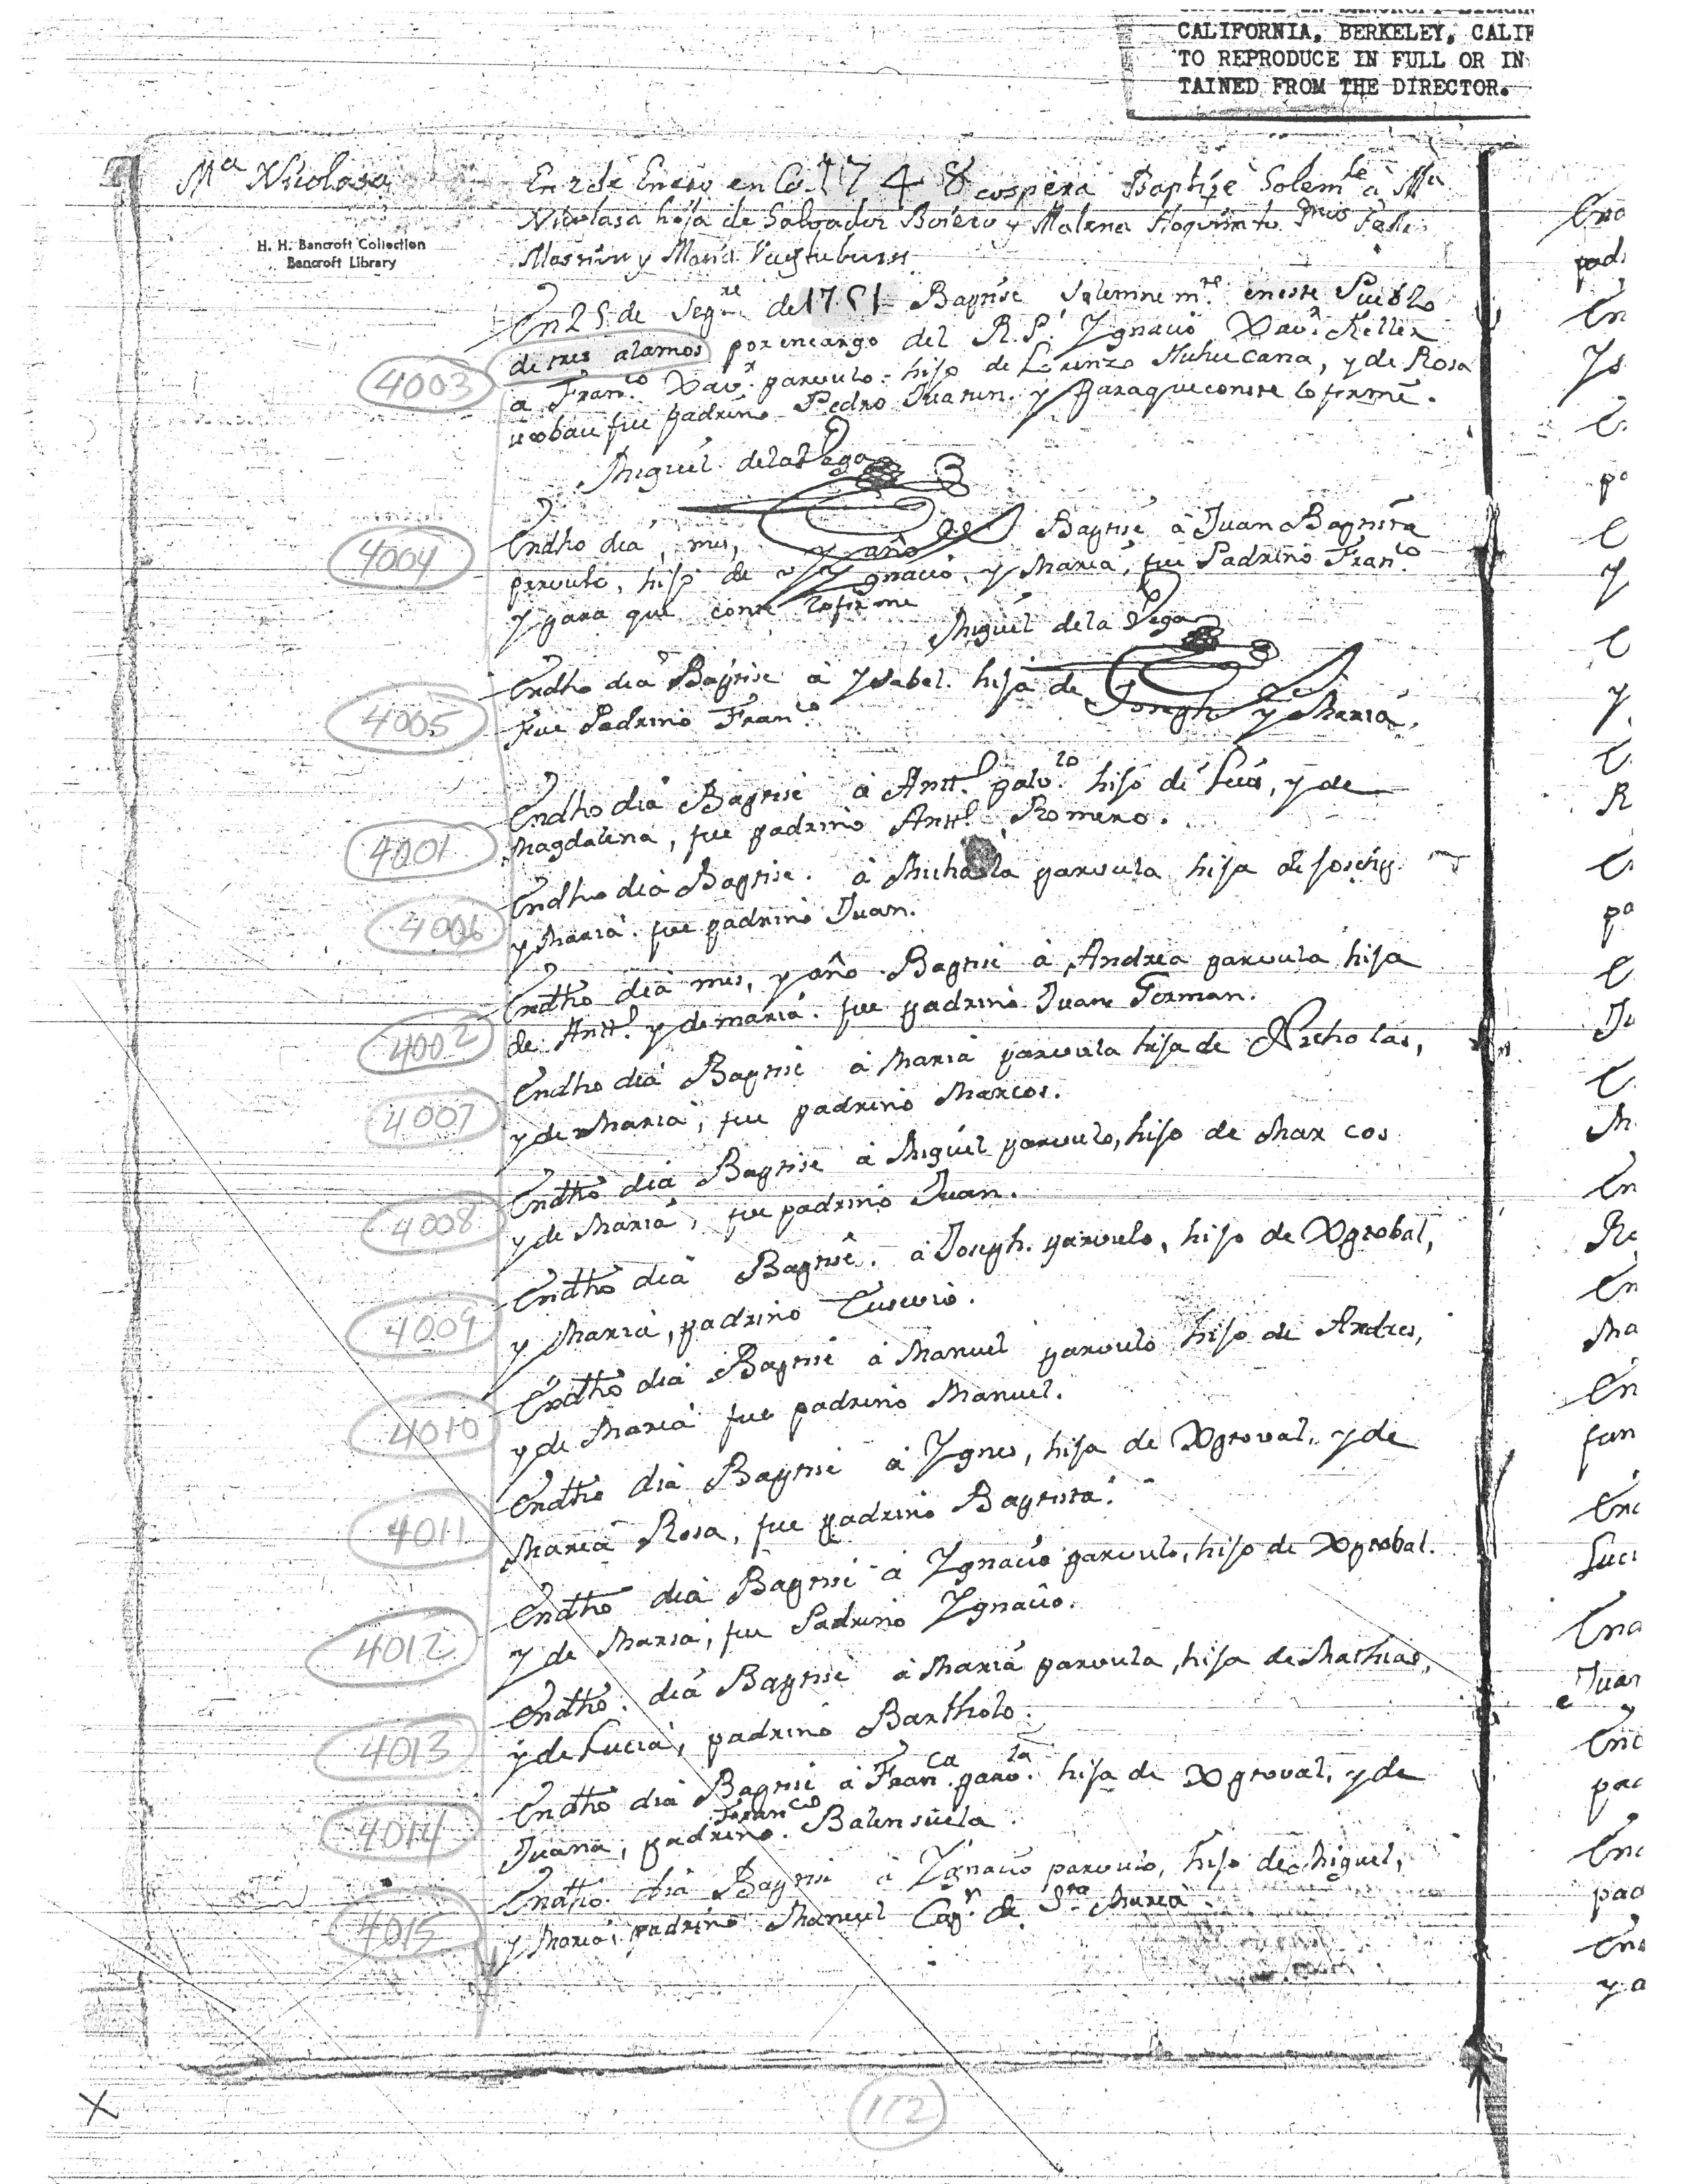 CALIFORNIA, BERKELEY, CALIF
TO REPRODUCE IN FULL OR IN
TAINED FROM THE DIRECTOR.
Mª Nicolasa
H. H. Bancroft Collection
Bancroft Library
En 2 de Enero en Co. 1748 cospera Baptize Solemte à Ma
Nicolasa hija de Salvador Boiero y Malena
y Maria
En 25 de de 1751 Baptise solemne mte en este Pueblo
de tres alamos por encargo del R. P. Ygnacio Xavr Keller
4003
a Franco Xavr parvulo hijo de Lorenzo Muhucana, y de Rosa
fue padrino Pedro y paraque conste lo firmé.
Miguél dela Vega
4004
Endho dia, mes, y año Baptisé à Juan Baptista
parvulo, hijo de Ygnacio, y Maria, fue Padrino Franco
y para que conste lo firme
Miguél dela Vega
4005
Endho dia Baptise à Ysabel hija de Joseph y Maria,
fue Padrino Franco
4001
Endho dia Baptisé à Antto palo hijo de Luis, y de
Magdalena, fue padrino Antto Romero.
4006
Endho dia Baptise. à Michaela parvula hija de Joseph
y Maria. fue padrino Juan.
4002
Endtho dia mes, y año Baptisé à Andrea parvula hija
de Antto y de maria. fue padrino Juan German.
4007
Endho dia Baptisé à Maria parvula hija de Nicholas,
y de Maria, fue padrino Marcos.
4008
Endtho dia Baptisé à Miguél parvulo, hijo de Marcos
y de Maria, fue padrino Juan.
4009
Endtho dia Baptisé. à Joseph. parvulo, hijo de Xptobal,
y Maria, padrino Eusevio.
4010
Endtho dia Baptisé à Manuel parvulo hijo de Andres,
y de Maria fue padrino Manuel.
4011
Endtho dia Baptisé à Ygnes, hija de Xptoval, y de
Maria Rosa, fue padrino Baptista.
4012
Endtho dia Baptisé à Ygnacio parvulo, hijo de Xptobal.
y de Maria, fue Padrino Ygnacio.
4013
Endtho dia Baptisé à Maria parvula, hija de Mathias,
y de Lucia, padrino Bartholo.
4014
Endtho dia Baptisé à Franca parvla hija de Xptoval, y de
Juana, padrino Franco Balensuela.
4015
Endtho dia Baptisé à Ygnacio parvulo, hijo de Miguel,
y Maria, padrino Manuel Capn de Sta Maria.
112